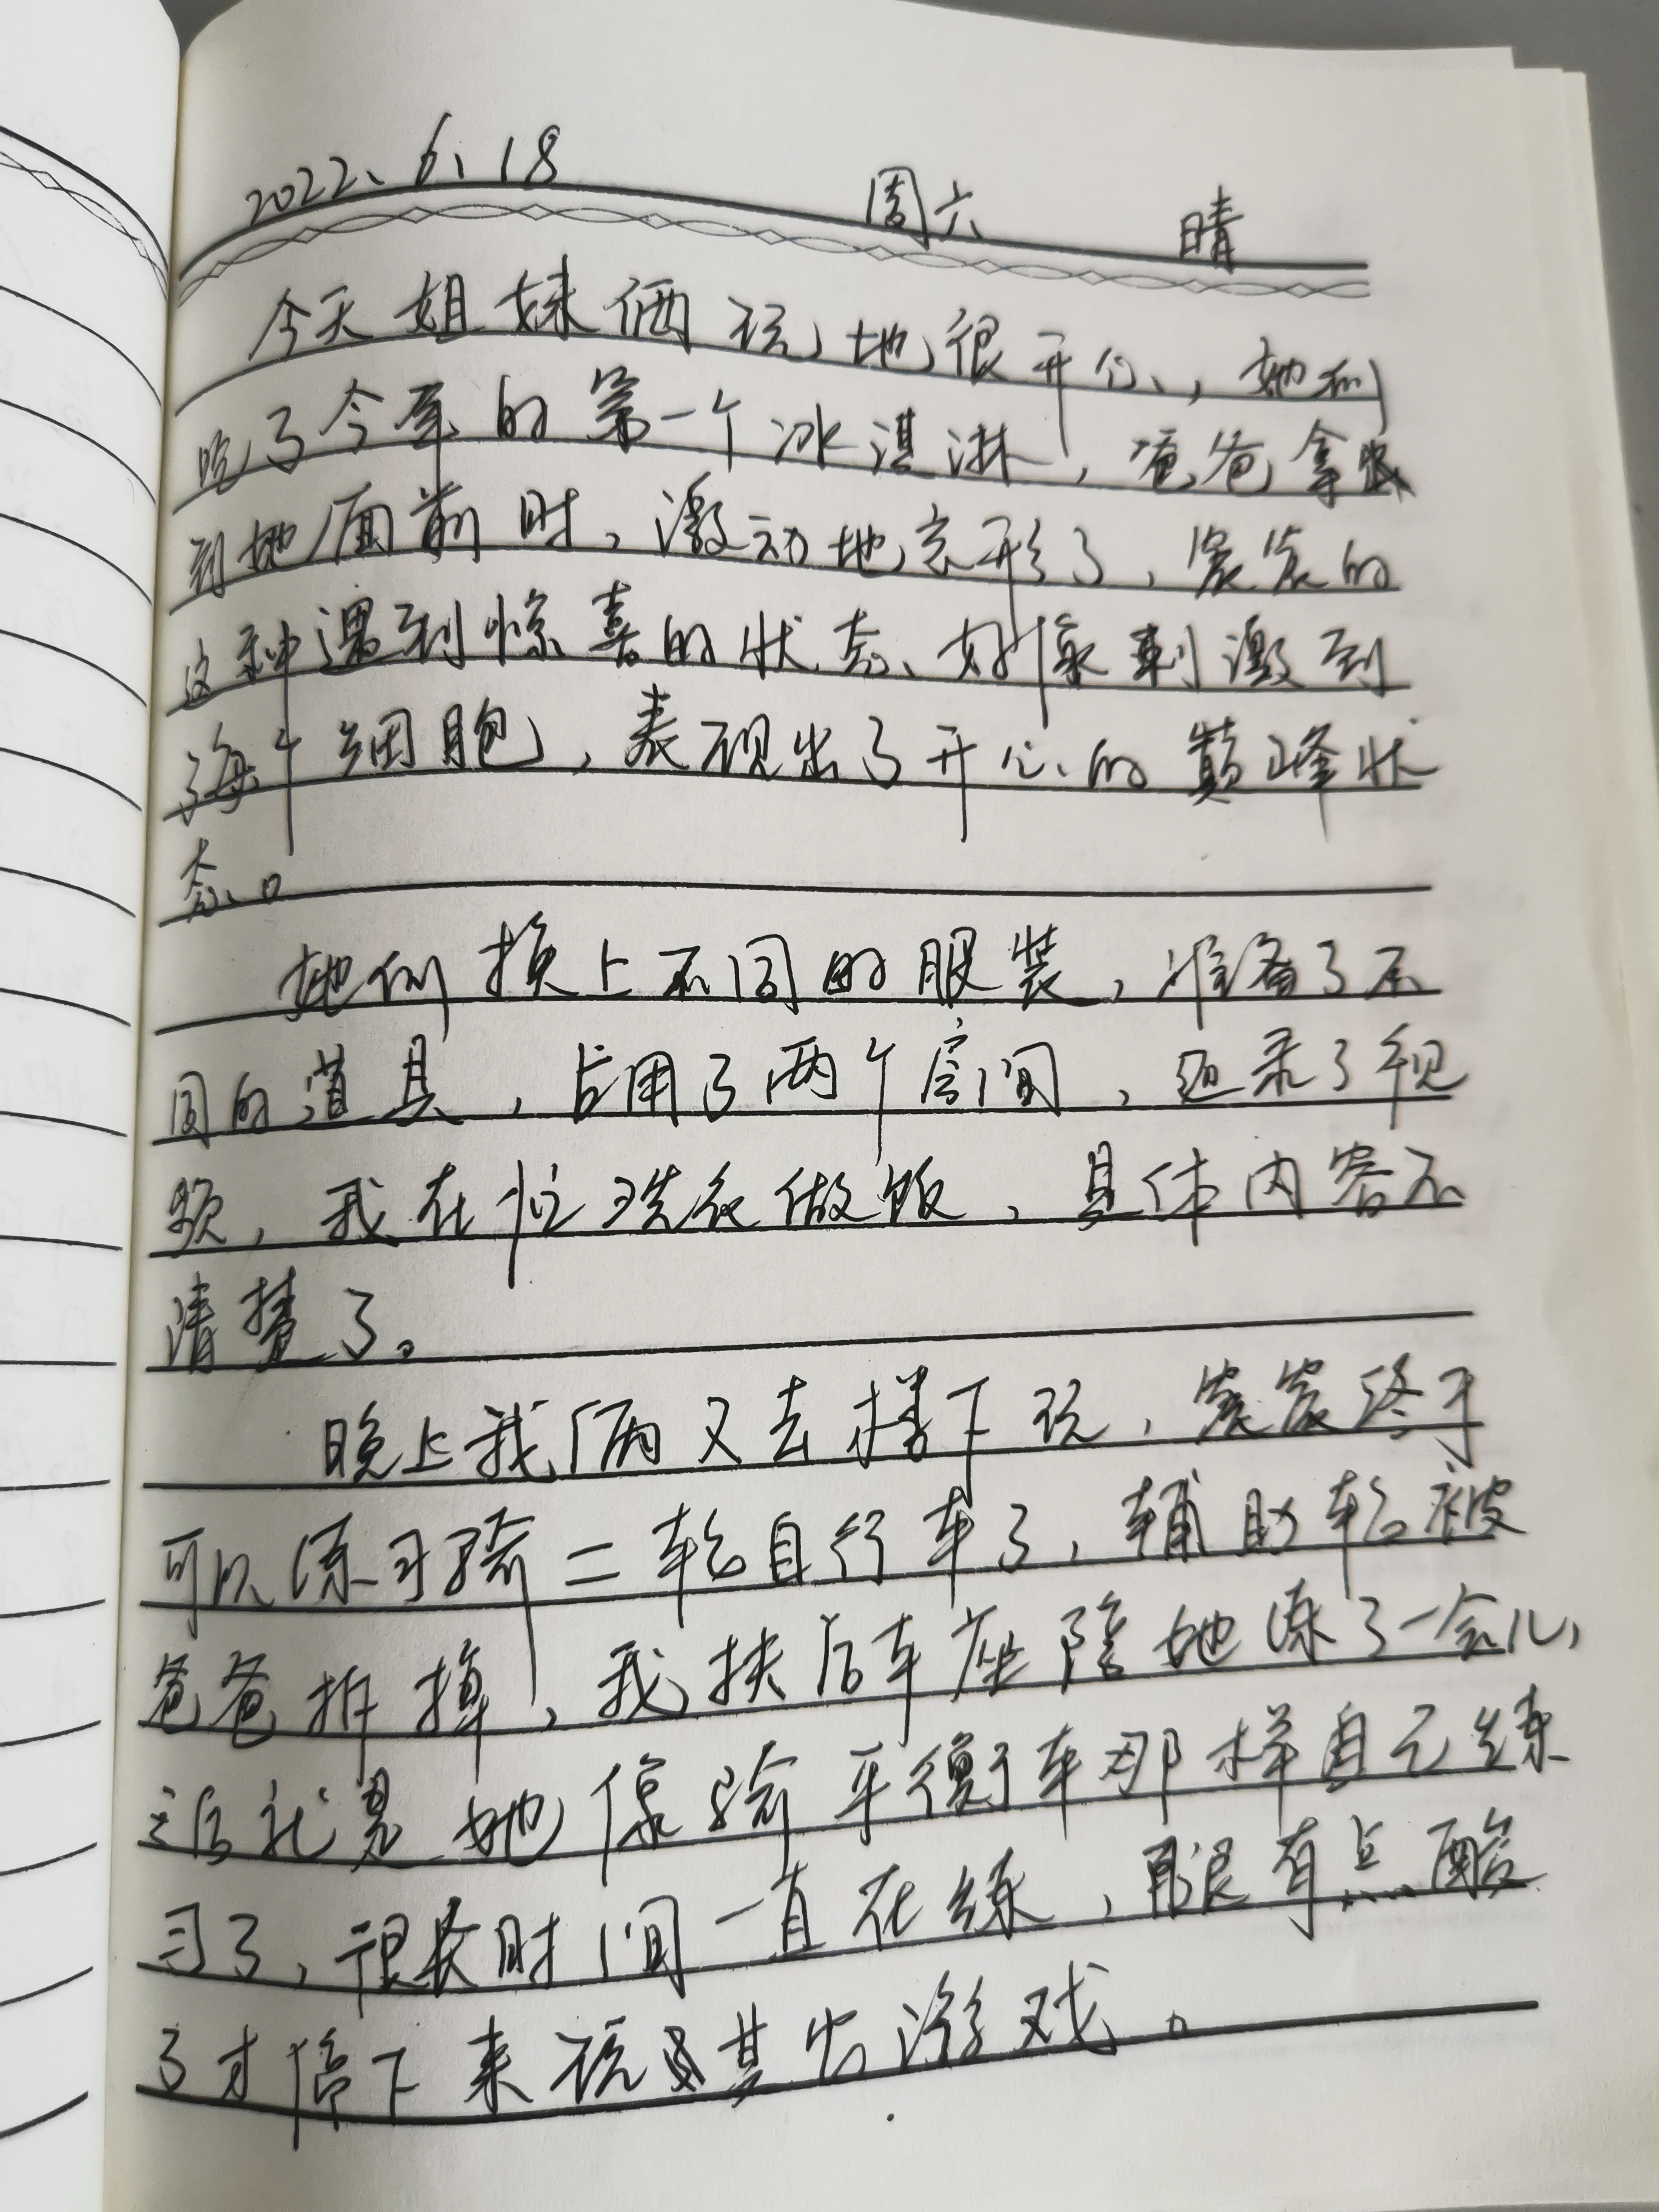 2022、6、18 周六 晴
今天姐妹俩玩地很开心,她们
吃了今年的第一个冰淇淋,爸爸拿
到她面前时,激动地忘形了,宸宸的
这种遇到惊喜的状态、好像刺激到
了每个细胞,表现出了开心的巅峰状
态。
她们换上不同的服装,准备了不
同的道具,占用了两个房间,还录了视
频,我在忙洗衣做饭,具体内容不
清楚了。
晚上我们俩又去楼下玩,宸宸终于
可以练习骑二轮自行车了,辅助轮被
爸爸拆掉,我扶后车座陪她练了一会儿,
之后就是她像骑平衡车那样自己练
习了,很长时间一直在练,腿有点酸
了才停下来玩其它游戏。